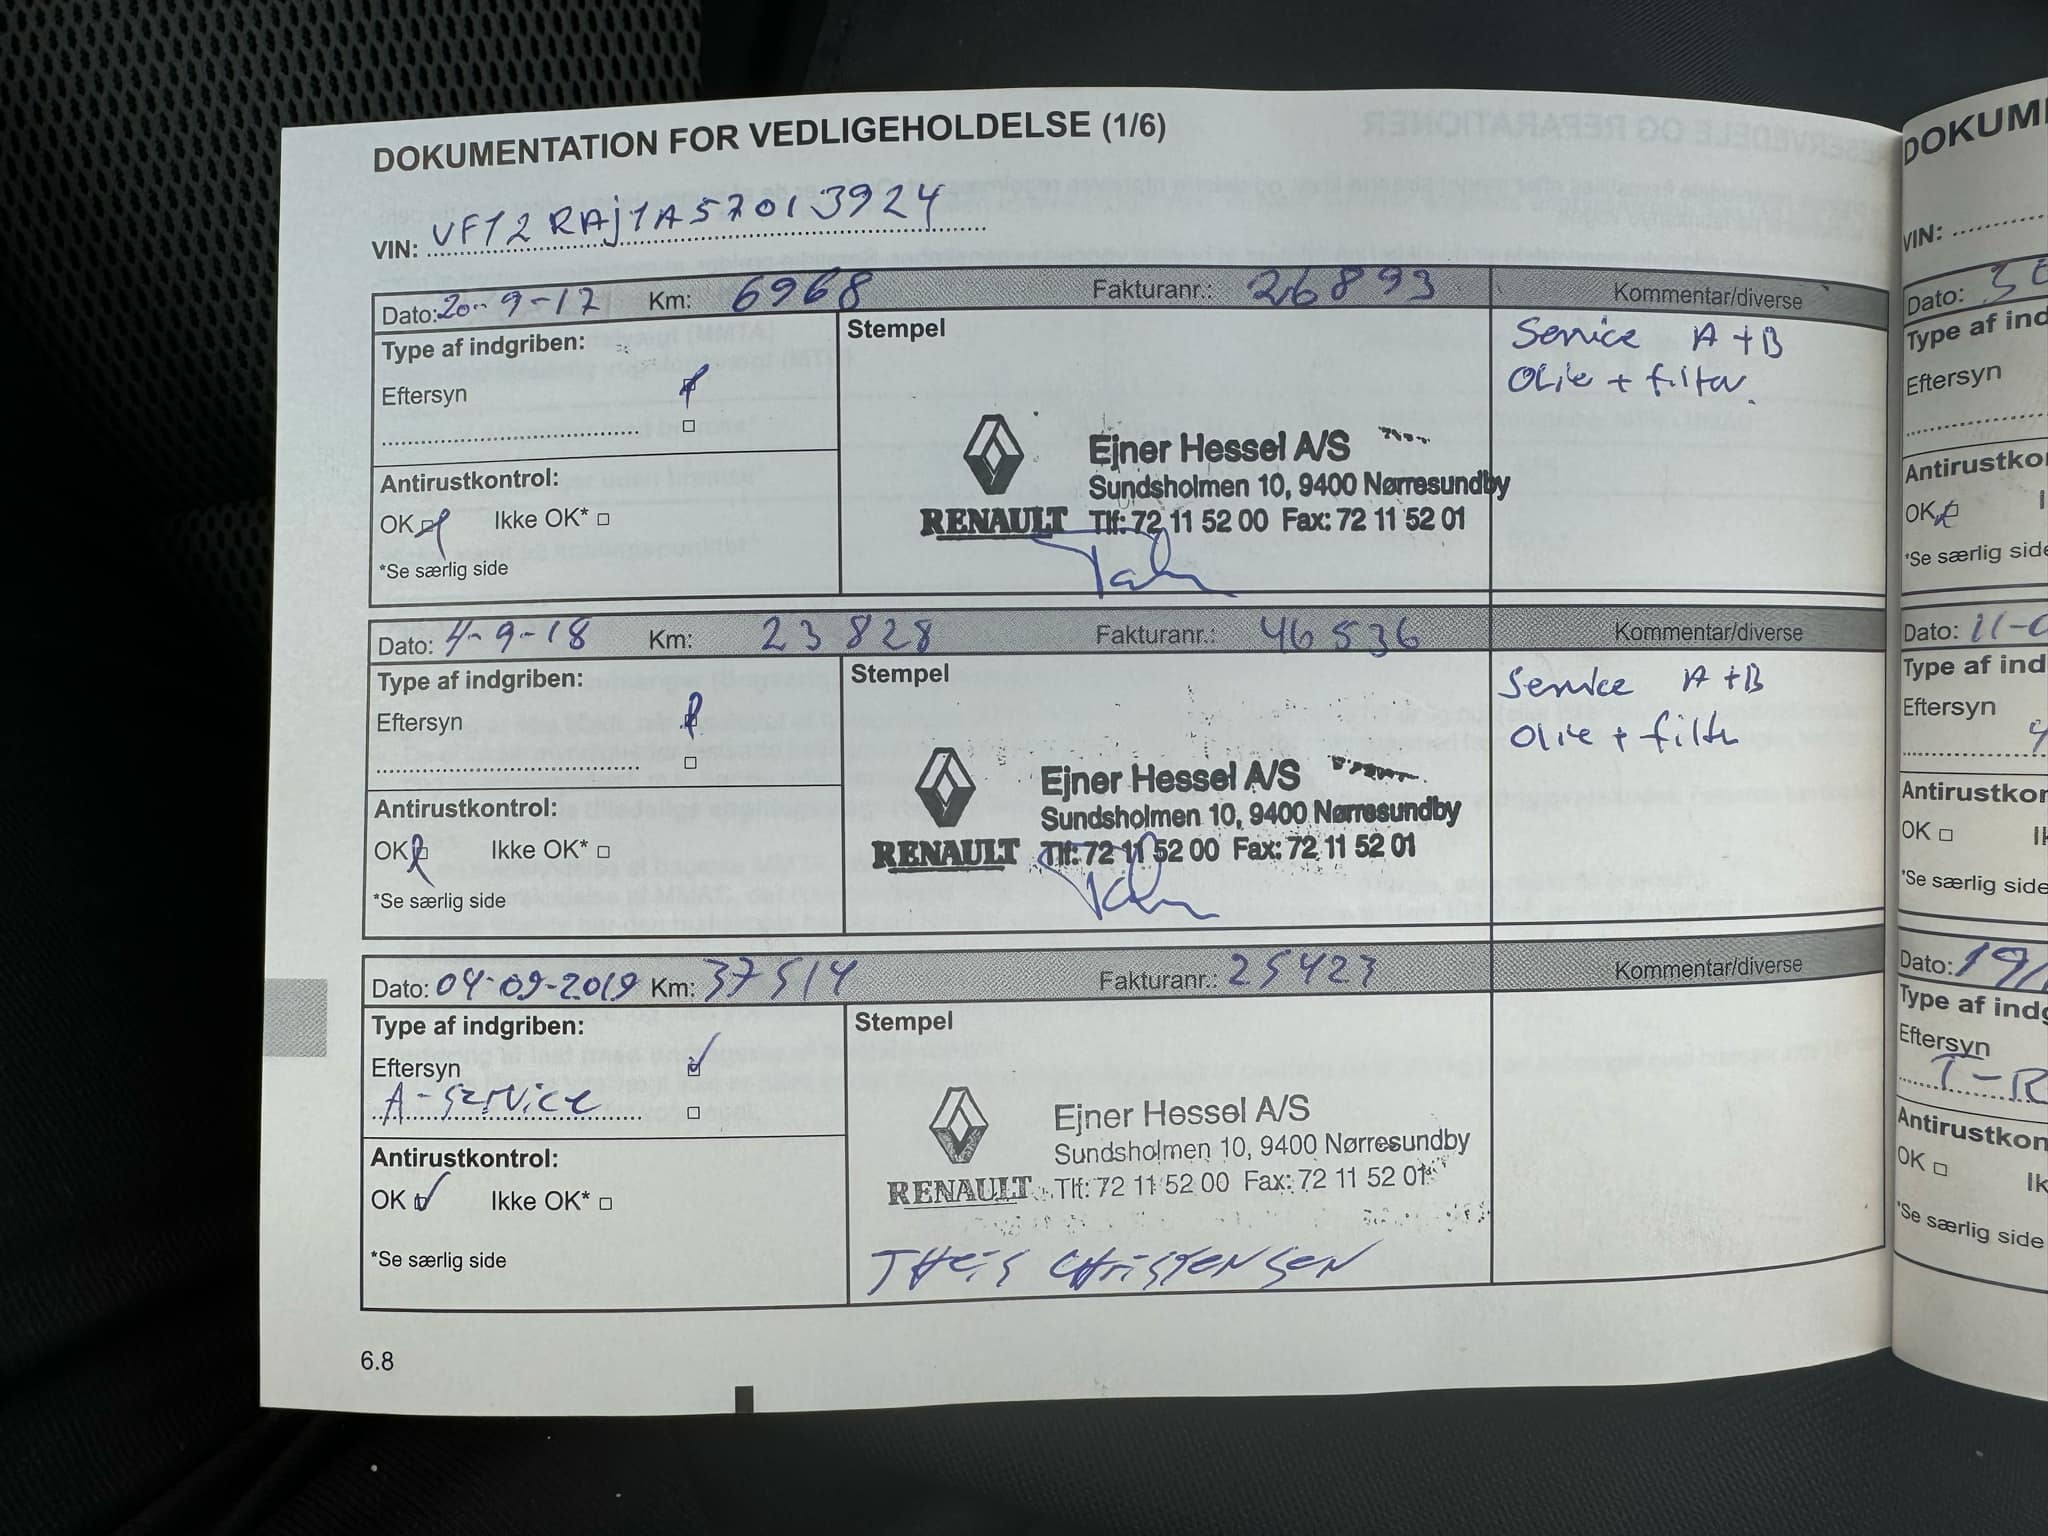 DOKUMENTATION FOR VEDLIGEHOLDELSE (1/6)
VIN: VF12RAj1A57013924
Dato: 20-9-17 Km: 6968 Fakturanr.: 26893 Kommentar/diverse
Type af indgriben:
Eftersyn
Antirustkontrol:
OK Ikke OK*
*Se særlig side
Stempel
Ejner Hessel A/S
Sundsholmen 10, 9400 Nørresundby
RENAULT Tlf: 72 11 52 00 Fax: 72 11 52 01
Service A+B
Olie + filter
Dato: 4-9-18 Km: 23828 Fakturanr.: 46536 Kommentar/diverse
Type af indgriben:
Eftersyn
Antirustkontrol:
OK Ikke OK*
*Se særlig side
Stempel
Ejner Hessel A/S
Sundsholmen 10, 9400 Nørresundby
RENAULT Tlf: 72 11 52 00 Fax: 72 11 52 01
Service A+B
Olie + filter
Dato: 04-09-2019 Km: 37514 Fakturanr.: 25423 Kommentar/diverse
Type af indgriben:
Eftersyn
A-service
Antirustkontrol:
OK Ikke OK*
*Se særlig side
Stempel
Ejner Hessel A/S
Sundsholmen 10, 9400 Nørresundby
RENAULT Tlf: 72 11 52 00 Fax: 72 11 52 01
THeis CHristensen
6.8
DOKUM
VIN:
Dato: 30
Type af ind
Eftersyn
Antirustko
OK
*Se særlig side
Dato: 11-0
Type af ind
Eftersyn
Antirustkor
OK
*Se særlig side
Dato: 19/
Type af indg
Eftersyn
T-R
Antirustkon
OK Ik
*Se særlig side